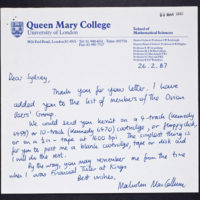 Queen Mary College
University of London
School of
Mathematical Sciences
26.2.87
Dear Sydney,
Thank you for your letter. I have
added you to the list of members of the Orion
Users' Group.
We could send you Kermit on a 9-track (Kennedy
) or 10-track (Kennedy 6470) cartridge, or floppy disk,
or on a ½in - tape at 1600 bpi. The simplest thing is
for you to post me a blank cartridge, tape or disk and
I will do the rest.
By the way, you may remember me from the time
when I was Financial Tutor at Kings.
Best wishes,
Malcolm MacCallum